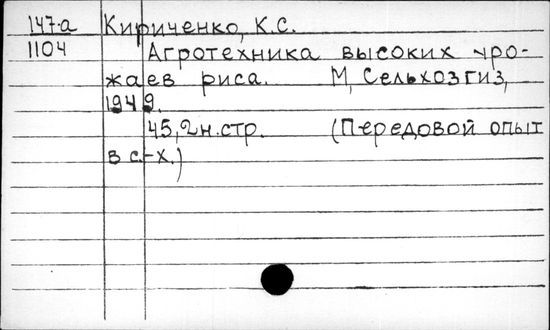 147-а Кириченко, К.С.
1104 Агротехника высоких уро-
жаев риса. М, Сельхозгиз,
1949.
45,2н.стр. (Передовой опыт
в с.-х.)